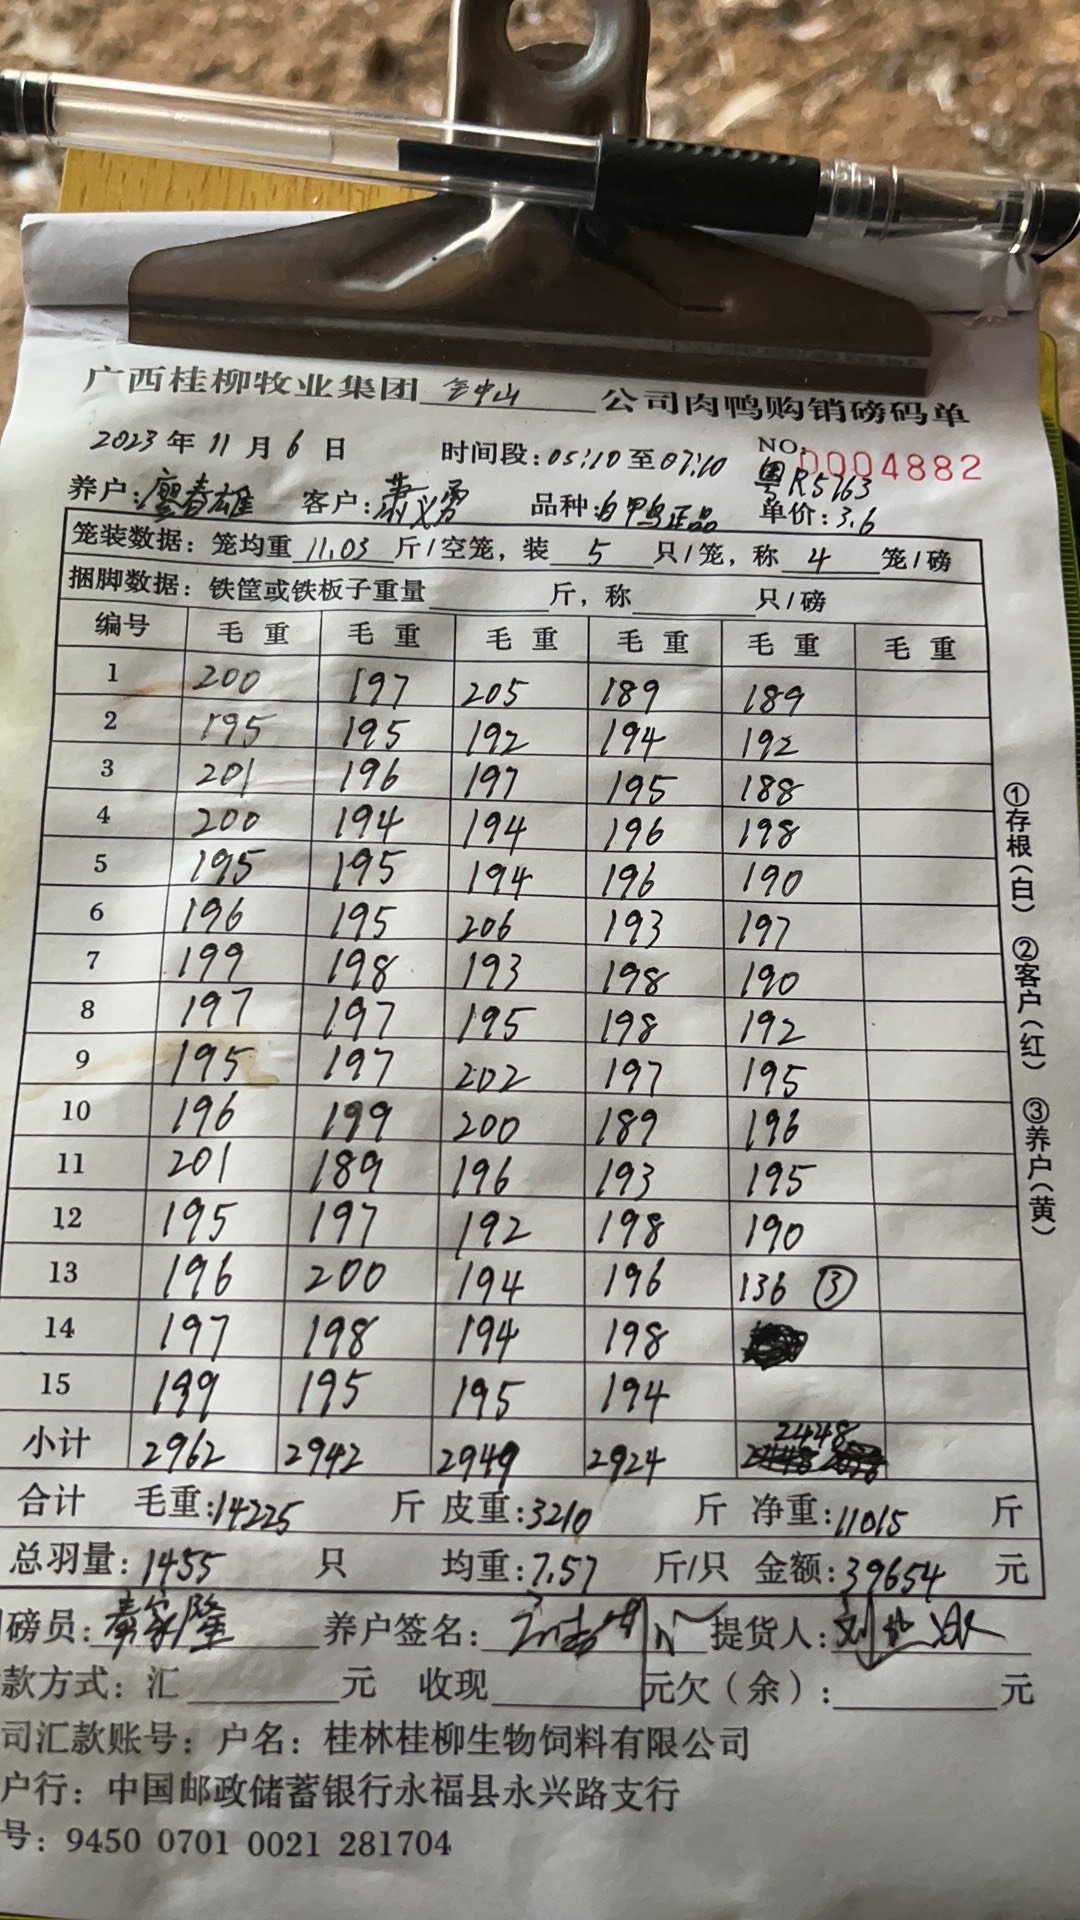 广西桂柳牧业集团 公司肉鸭购销磅码单
2023年11月6日 时间段:05:10至07:10 NO:0004882
粤R5763
养户:廖春雄 客户:萧义勇 品种:白鸭正品 单价:3.6
笼装数据:笼均重 11.03 斤/空笼,装 5 只/笼,称 4 笼/磅
捆脚数据:铁筐或铁板子重量 斤,称 只/磅
编号 毛重 毛重 毛重 毛重 毛重 毛重
1 200 197 205 189 189
2 195 195 192 194 192
3 201 196 197 195 188
4 200 194 194 196 198
5 195 195 194 196 190
6 196 195 206 193 197
7 199 198 193 198 190
8 197 197 195 198 192
9 195 197 202 197 195
10 196 199 200 189 196
11 201 189 196 193 195
12 195 197 192 198 190
13 196 200 194 196 136 ③
14 197 198 194 198
15 199 195 195 194
小计 2962 2942 2949 2924 2448
合计 毛重:14225 斤 皮重:3210 斤 净重:11015 斤
总羽量:1455 只 均重:7.57 斤/只 金额:39654 元
磅员:秦家隆 养户签名: 提货人:
款方式:汇 元 收现 元欠(余): 元
司汇款账号:户名:桂林桂柳生物饲料有限公司
户行:中国邮政储蓄银行永福县永兴路支行
号:9450 0701 0021 281704
①存根(白) ②客户(红) ③养户(黄)